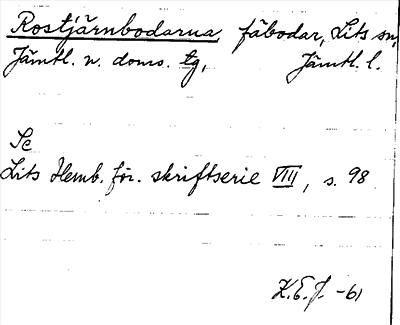 Rostjärnbodarna fäbodar, Lits sn,
Jämtl. n. doms. tg, Jämtl. l.
Se
Lits Hemb. för. skriftserie VIII, s. 98
K.E.J. -61